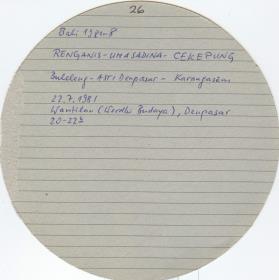 26
Bali 1981-8
RENGANIS - UMASADINA - CEKEPUNG
Buleleng - ASTI Denpasar - Karangasem
22.7.1981
Wantilan (Werdhi Budaya), Denpasar
20-22h